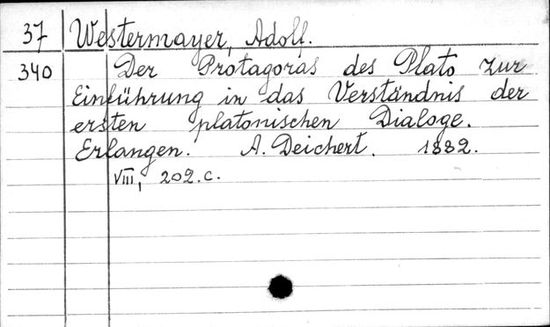 37 Westermayer, Adolf.
340 Der Protagoras des Plato zur
Einführung in das Verständnis der
ersten platonischen Dialoge.
Erlangen. A. Deichert. 1882.
VIII, 202.c.